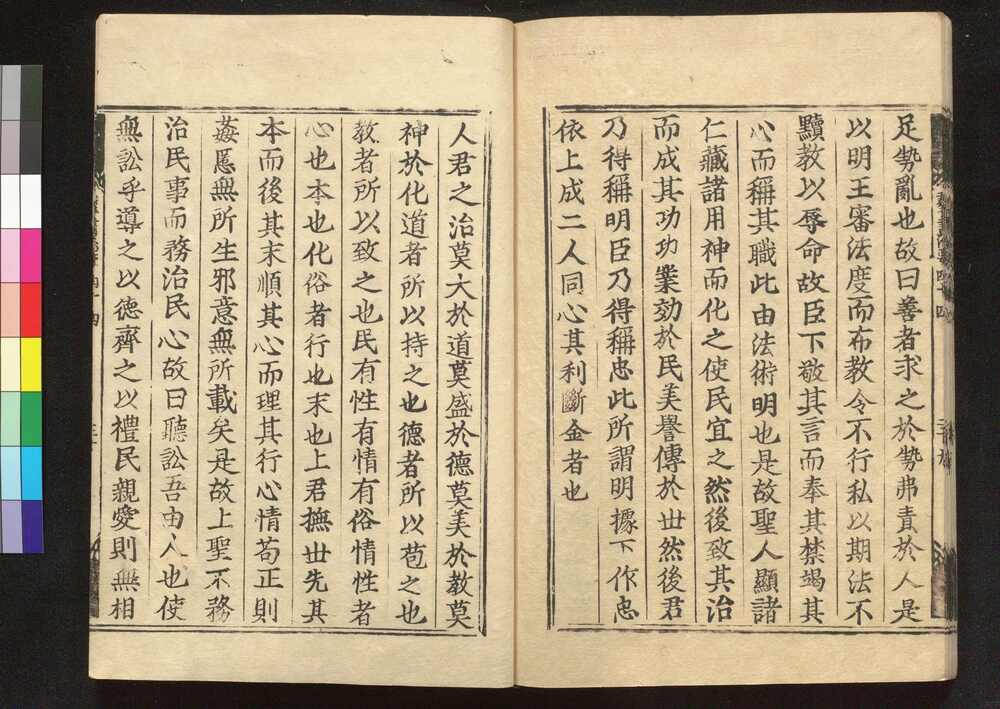 足勢亂也故曰善者求之於勢弗責於人是
以明王審法度而布教令不行私以期法不
黷教以辱命故臣下敬其言而奉其禁竭其
心而稱其職此由法術明也是故聖人顯諸
仁藏諸用神而化之使民宜之然後致其治
而成其功功業効於民美譽傳於世然後君
乃得稱明臣乃得稱忠此所謂明據下作忠
依上成二人同心其利斷金者也
人君之治莫大於道莫盛於德莫美於教莫
神於化道者所以持之也德者所以苞之也
教者所以致之也民有性有情有俗情性者
心也本也化俗者行也末也上君撫世先其
本而後其末順其心而理其行心情苟正則
姦慝無所生邪意無所載矣是故上聖不務
治民事而務治民心故曰聽訟吾由人也使
無訟乎導之以德齊之以禮民親愛則無相